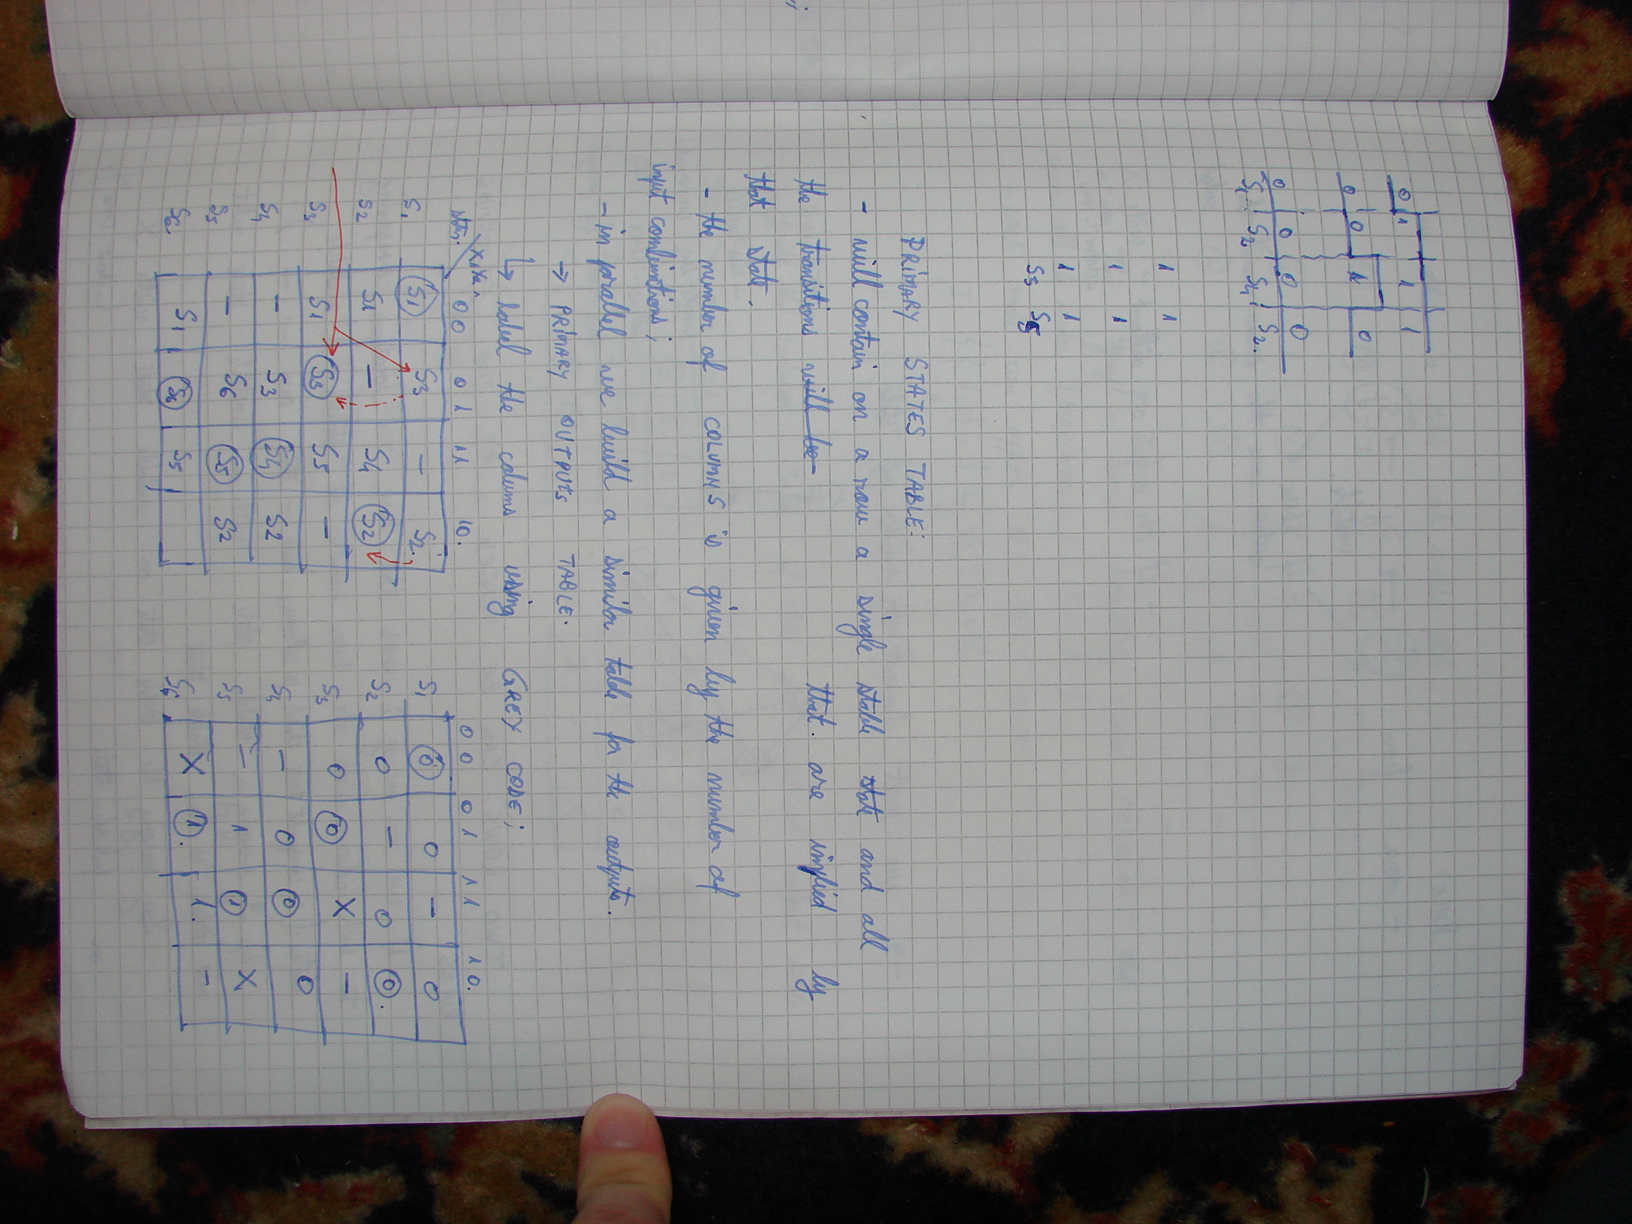 0 1 1 1
0 0 1 0
0 0 0 0
S1 S2 S1 S2.
1 1
1 1
1 1
S5 S6
PRIMARY STATES TABLE:
- will contain on a row a single stable state and all
the transitions will be that are implied by
that state.
- the number of COLUMNS is given by the number of
input combinations;
- in paralel we build a similar table for the outputs.
→ PRIMARY OUTPUTS TABLE.
↳ label the colums using GREY CODE;
00 01 11 10.
S1 S1 S3 - S2
S2 S1 - S4 S2
S3 S1 S3 S5 -
S4 - S3 S4 S2
S5 - S6 S5 S2
S6 S1 S6 S5
00 01 11 10.
S1 0 0 - 0
S2 0 - 0 0.
S3 0 0 X -
S4 - 0 0 0
S5 - 1 1 X
S6 X 1. 1. -